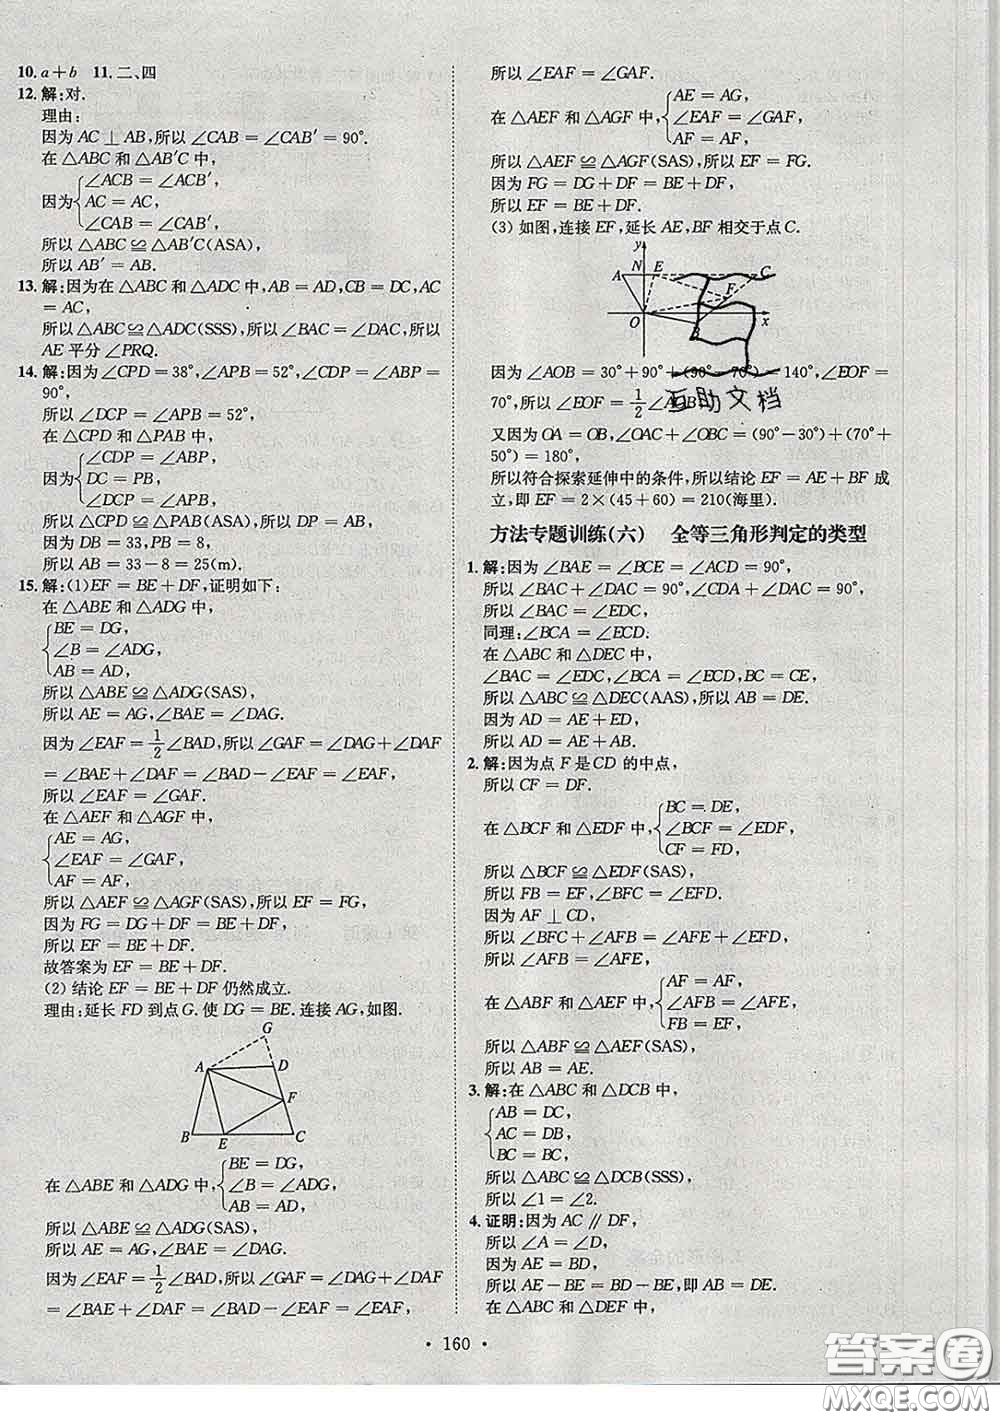 10. a+b  11. 二、四
12. 解:对.
理由:
因为 AC ⊥ AB,所以 ∠CAB = ∠CAB′ = 90°.
在 △ABC 和 △AB′C 中,
因为 { ∠ACB = ∠ACB′,
AC = AC,
∠CAB = ∠CAB′,
所以 △ABC ≌ △AB′C(ASA),
所以 AB′ = AB.
13. 解:因为在 △ABC 和 △ADC 中,AB = AD,CB = DC,AC
= AC,
所以 △ABC≌△ADC(SSS),所以 ∠BAC = ∠DAC,所以
AE 平分 ∠PRQ.
14. 解:因为 ∠CPD = 38°,∠APB = 52°,∠CDP = ∠ABP =
90°,
所以 ∠DCP = ∠APB = 52°,
在 △CPD 和 △PAB 中,
因为 { ∠CDP = ∠ABP,
DC = PB,
∠DCP = ∠APB,
所以 △CPD ≌ △PAB(ASA),所以 DP = AB.
因为 DB = 33,PB = 8,
所以 AB = 33 − 8 = 25(m).
15. 解:(1)EF = BE + DF,证明如下:
在 △ABE 和 △ADG 中,
{ BE = DG,
∠B = ∠ADG,
AB = AD,
所以 △ABE ≌ △ADG(SAS),
所以 AE = AG,∠BAE = ∠DAG.
因为 ∠EAF = 1/2 ∠BAD,所以 ∠GAF = ∠DAG + ∠DAF
= ∠BAE + ∠DAF = ∠BAD − ∠EAF = ∠EAF,
所以 ∠EAF = ∠GAF.
在 △AEF 和 △AGF 中,
{ AE = AG,
∠EAF = ∠GAF,
AF = AF,
所以 △AEF ≌ △AGF(SAS),所以 EF = FG,
因为 FG = DG + DF = BE + DF,
所以 EF = BE + DF.
故答案为 EF = BE + DF.
(2) 结论 EF = BE + DF 仍然成立.
理由:延长 FD 到点 G. 使 DG = BE. 连接 AG,如图.
G
A D
F
B E C
在 △ABE 和 △ADG 中, { BE = DG,
∠B = ∠ADG,
AB = AD,
所以 △ABE ≌ △ADG(SAS),
所以 AE = AG,∠BAE = ∠DAG.
因为 ∠EAF = 1/2 ∠BAD,所以 ∠GAF = ∠DAG + ∠DAF
= ∠BAE + ∠DAF = ∠BAD − ∠EAF = ∠EAF,
所以 ∠EAF = ∠GAF.
在 △AEF 和 △AGF 中, { AE = AG,
∠EAF = ∠GAF,
AF = AF,
所以 △AEF ≌ △AGF(SAS),所以 EF = FG.
因为 FG = DG + DF = BE + DF,
所以 EF = BE + DF.
(3) 如图,连接 EF,延长 AE,BF 相交于点 C.
y
A N E C
F
O B x
因为 ∠AOB = 30° + 90° + (90° − 70°) = 140°,∠EOF =
70°,所以 ∠EOF = 1/2 ∠AOB
互助文档
又因为 OA = OB,∠OAC + ∠OBC = (90° − 30°) + (70° +
50°) = 180°,
所以符合探索延伸中的条件,所以结论 EF = AE + BF 成
立,即 EF = 2 × (45 + 60) = 210(海里).
方法专题训练(六) 全等三角形判定的类型
1. 解:因为 ∠BAE = ∠BCE = ∠ACD = 90°,
所以 ∠BAC + ∠DAC = 90°,∠CDA + ∠DAC = 90°,
所以 ∠BAC = ∠EDC,
同理:∠BCA = ∠ECD.
在 △ABC 和 △DEC 中,
∠BAC = ∠EDC,∠BCA = ∠ECD,BC = CE,
所以 △ABC ≌ △DEC(AAS),所以 AB = DE.
因为 AD = AE + ED,
所以 AD = AE + AB.
2. 解:因为点 F 是 CD 的中点,
所以 CF = DF.
在 △BCF 和 △EDF 中, { BC = DE,
∠BCF = ∠EDF,
CF = FD,
所以 △BCF ≌ △EDF(SAS),
所以 FB = EF,∠BFC = ∠EFD.
因为 AF ⊥ CD,
所以 ∠BFC + ∠AFB = ∠AFE + ∠EFD,
所以 ∠AFB = ∠AFE,
在 △ABF 和 △AEF 中, { AF = AF,
∠AFB = ∠AFE,
FB = EF,
所以 △ABF ≌ △AEF(SAS),
所以 AB = AE.
3. 解:在 △ABC 和 △DCB 中,
{ AB = DC,
AC = DB,
BC = BC,
所以 △ABC ≌ △DCB(SSS),
所以 ∠1 = ∠2.
4. 证明:因为 AC // DF,
所以 ∠A = ∠D,
因为 AE = BD,
所以 AE − BE = BD − BE,即 AB = DE.
在 △ABC 和 △DEF 中,
• 160 •
答案圈
MXQE.COM